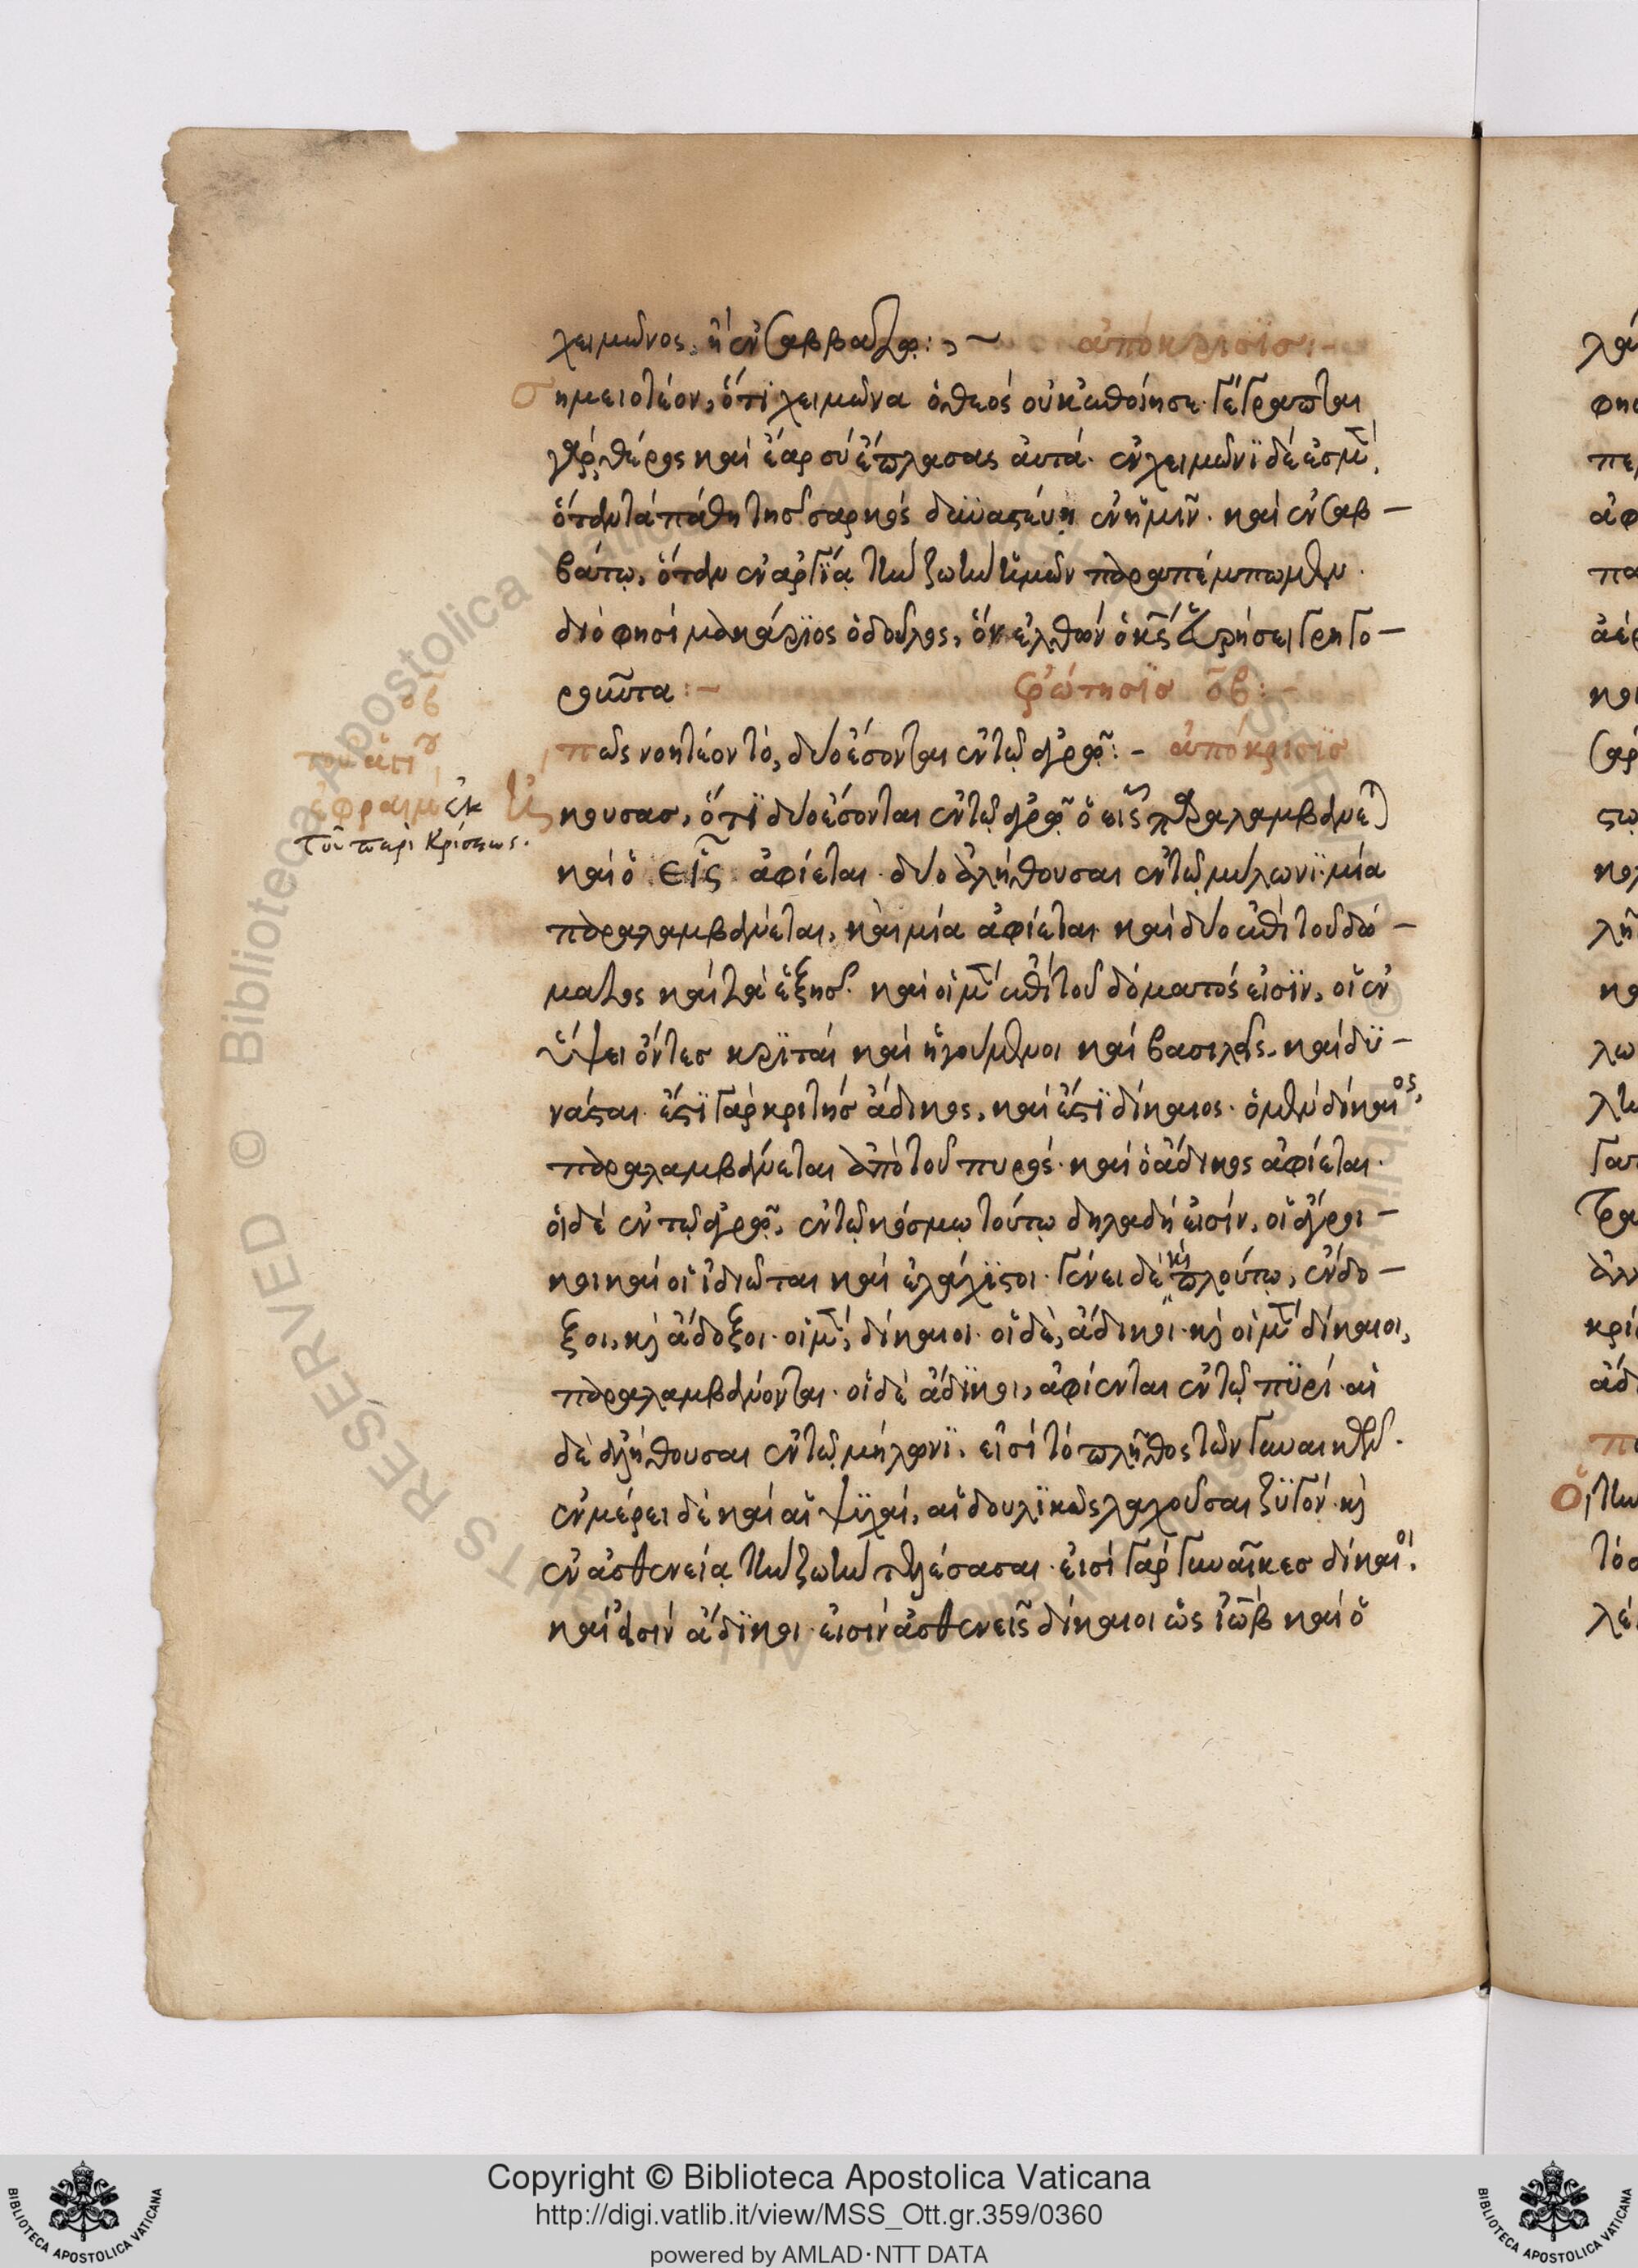 χειμῶνος, ἢ ἐν σαββάτῳ:, ~ ἀπόκρισϊσ:-
σημειοτέον, ὅτι χειμῶνα ὁ θεός οὐκ ἐποίησε· γέγραπται
γάρ, θέρος καί ἔαρ σύ ἔπλασας ἀυτά· ἐν χειμῶνϊ δέ ἐσμὲν,
ὅταν τά πάθη τῆσ σαρκός δϋναστέυῃ ἐν ἡμῖν· καί ἐν σαβ-
βάτῳ, ὅταν ἐν ἀργΐᾳ τὴν ζωὴν ἡμῶν παραπέμπωμεν·
διό φησί μακάριος ὁ δοῦλος, ὅν ἐλθών ὁ κ̅ς̅ εὑρήσει γρηγο-
ροῦντα:- ἐρώτησϊσ ο̅β̅:-
πῶς νοητέον τό, δύο ἔσονται ἐν τῷ ἀγρῷ:- ἀπόκρισϊσ
οβ
τοῦ ἁγίου
ἐφραιμ ἐκ
τοῦ περὶ κρίσεως.
ἤκουσασ, ὅτϊ δύο ἔσονται ἐν τῷ ἀγρῷ ὁ εἷς παραλαμβάνεται
καί ὁ εἷς ἀφίεται· δύο ἀλήθουσαι ἐν τῷ μύλωνϊ· μία
παραλαμβάνεται, καὶ μία ἀφίεται· καί δύο ἐπί τοῦ δώ-
ματος καί τά ἑξῆσ· καί οἱ μὲν ἐπί τοῦ δόματός εἰσϊν, οἱ ἐν
ὕψει ὄντεσ κρϊταί καί ἡγούμενοι καί βασιλεῖς· καί δϋ-
νάσται· ἔστϊ γάρ κριτήσ ἄδικος, καί ἔστϊ δίκαιος· ὁ μὲν δίκαιος,
παραλαμβάνεται ἀπό τοῦ πυρός· καί ὁ ἄδικος ἀφίεται·
οἱ δέ ἐν τῷ ἀγρῷ, ἐν τῷ κόσμῳ τούτῳ δηλαδή εἰσίν, οἱ ἄγροι-
κοι καί οἱ ἰδιῶται καί ἐλάχϊστοι· γένει δὲ κὶ πλούτῳ, ἔνδο-
ξοι, κὶ ἄδοξοι· οἱ μὲν, δίκαιοι· οἱ δὲ, ἄδικοι· κὶ οἱ μὲν δίκαιοι,
παραλαμβάνονται· οἱ δὲ ἄδϊκοι, ἀφίενται ἐν τῷ πϋρί· αἱ
δὲ ἀλήθουσαι ἐν τῷ μήλωνϊ· εἰσί τό πλῆθος τῶν γυναικῶν·
ἐν μέρει δὲ καί αἱ ψϋχαί, αἱ δουλϊκῶς λαχοῦσαι ζϋγόν· κὶ
ἐν ἀσθενείᾳ τὴν ζωὴν τελέσασαι· εἰσί γάρ γυναῖκεσ δίκαιοι·
καί εἰσίν ἄδϊκοι· εἰσίν ἀσθενεῖς δίκαιοι ὡς ἰὼβ καί ὁ